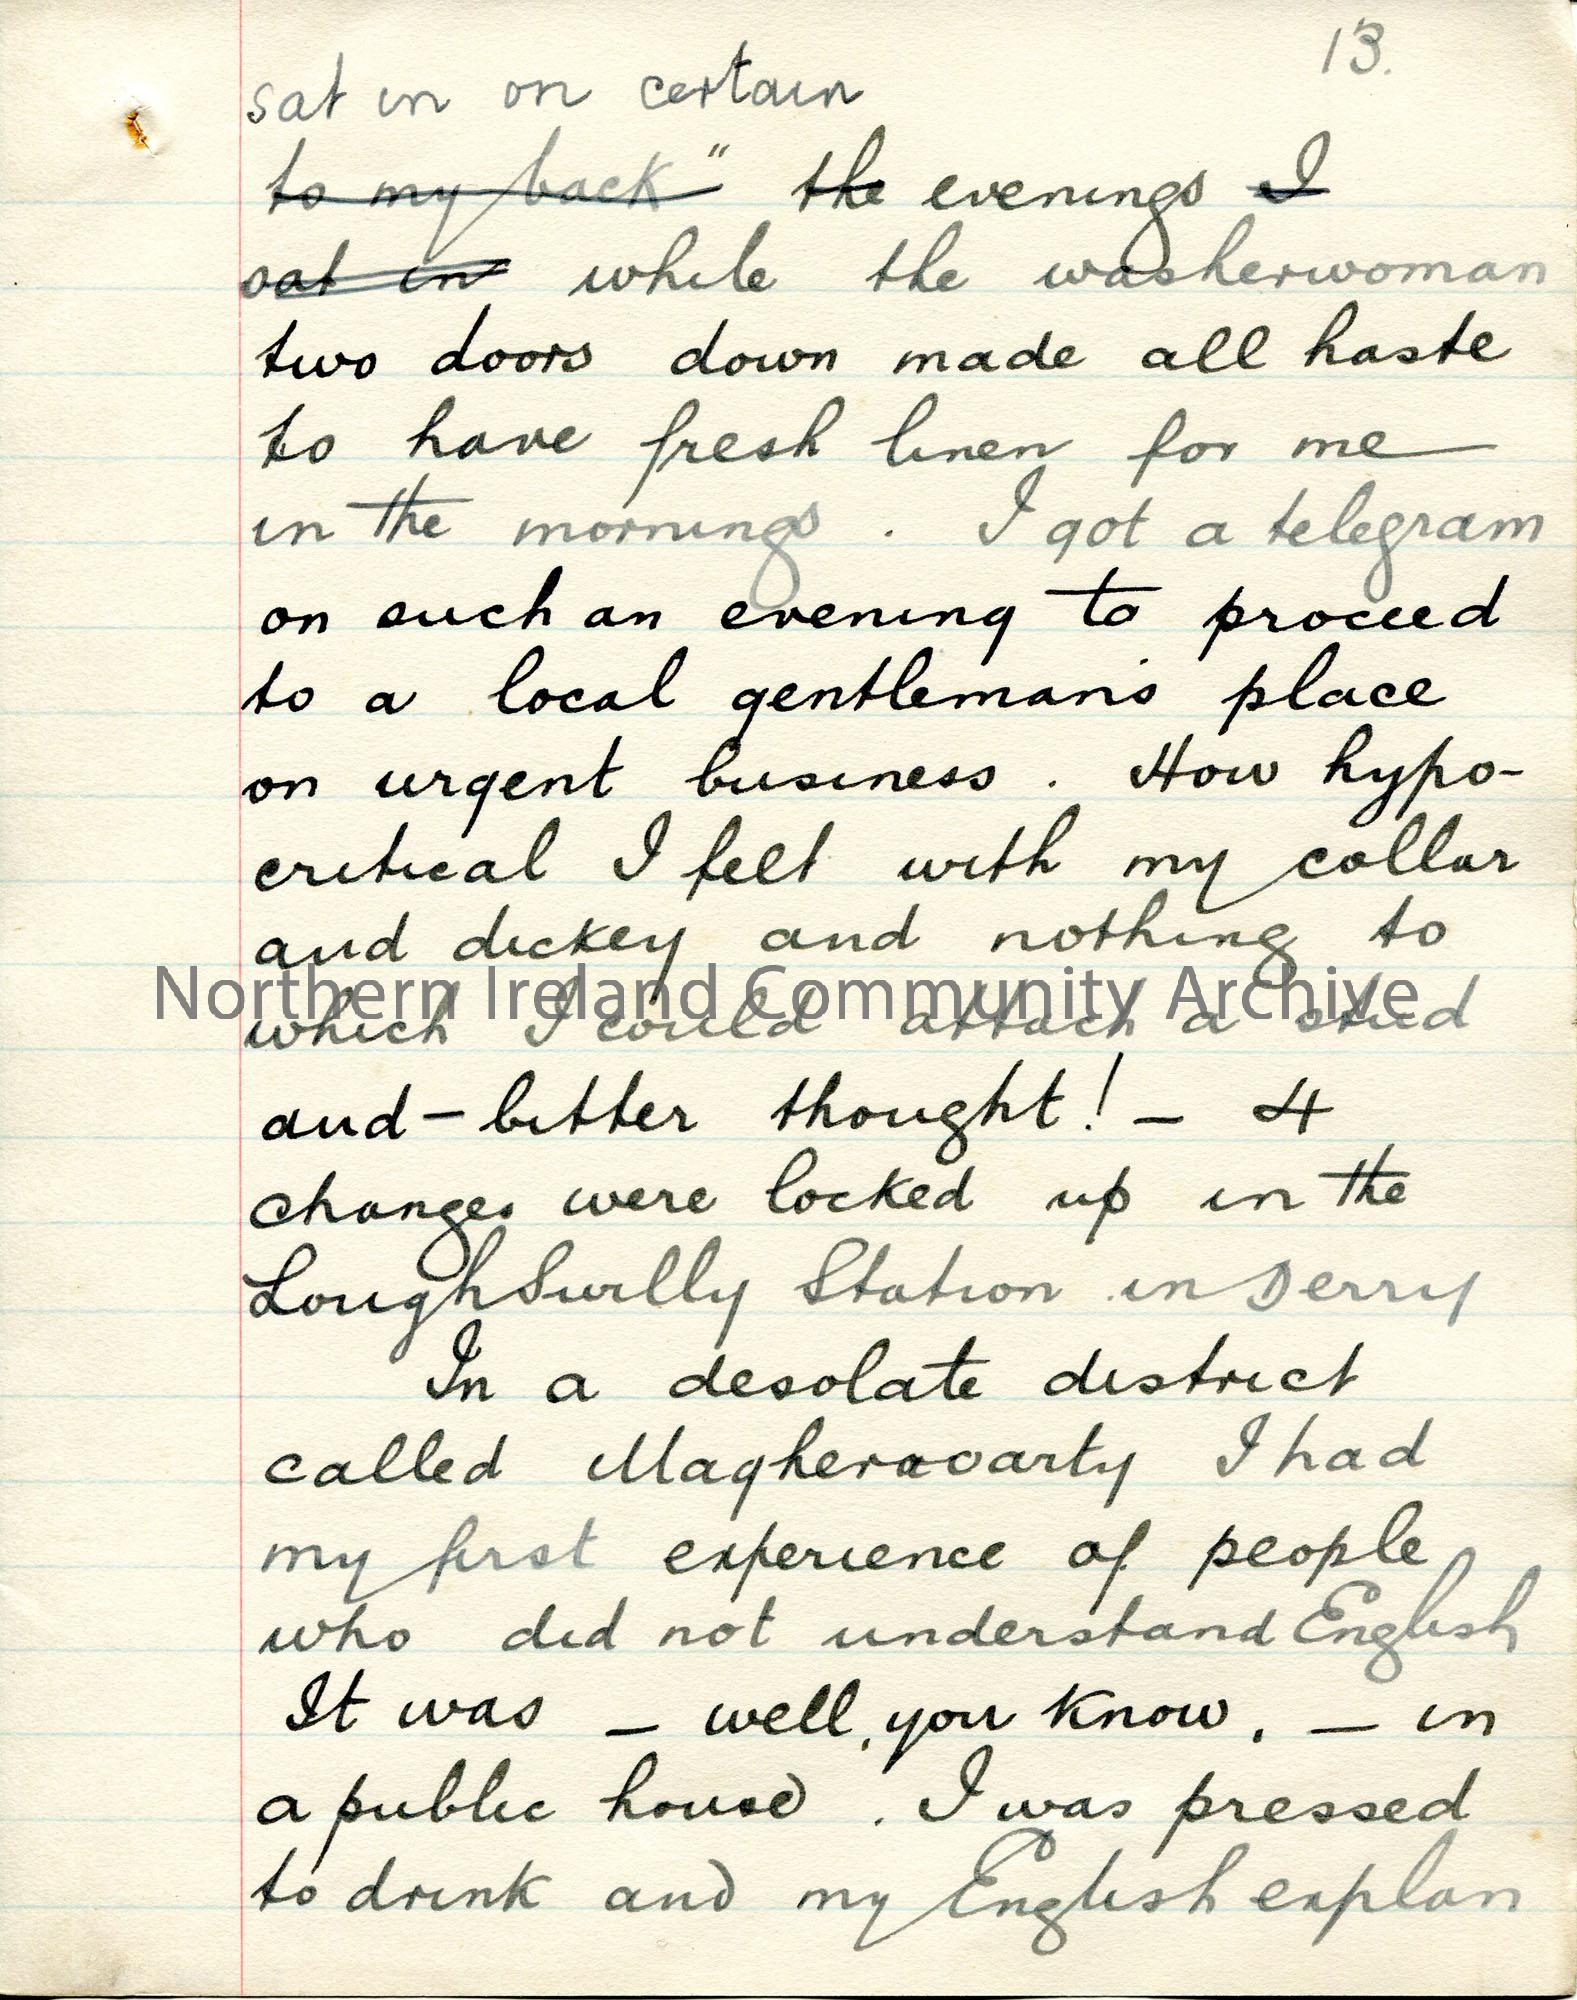 13.
sat in on certain
to my back" the evenings I
sat in while the washerwoman
two doors down made all haste
to have fresh linen for me
in the mornings. I got a telegram
on such an evening to proceed
to a local gentleman's place
on urgent business. How hypo-
critical I felt with my collar
and dickey and nothing to
Northern Ireland Community Archive
which I could attach a stud
and - bitter thought! - 4
changes were locked up in the
Lough Swilly Station in Derry
In a desolate district
called Magheraroarty I had
my first experience of people
who did not understand English
It was - well, you know, - in
a public house. I was pressed
to drink and my English explan